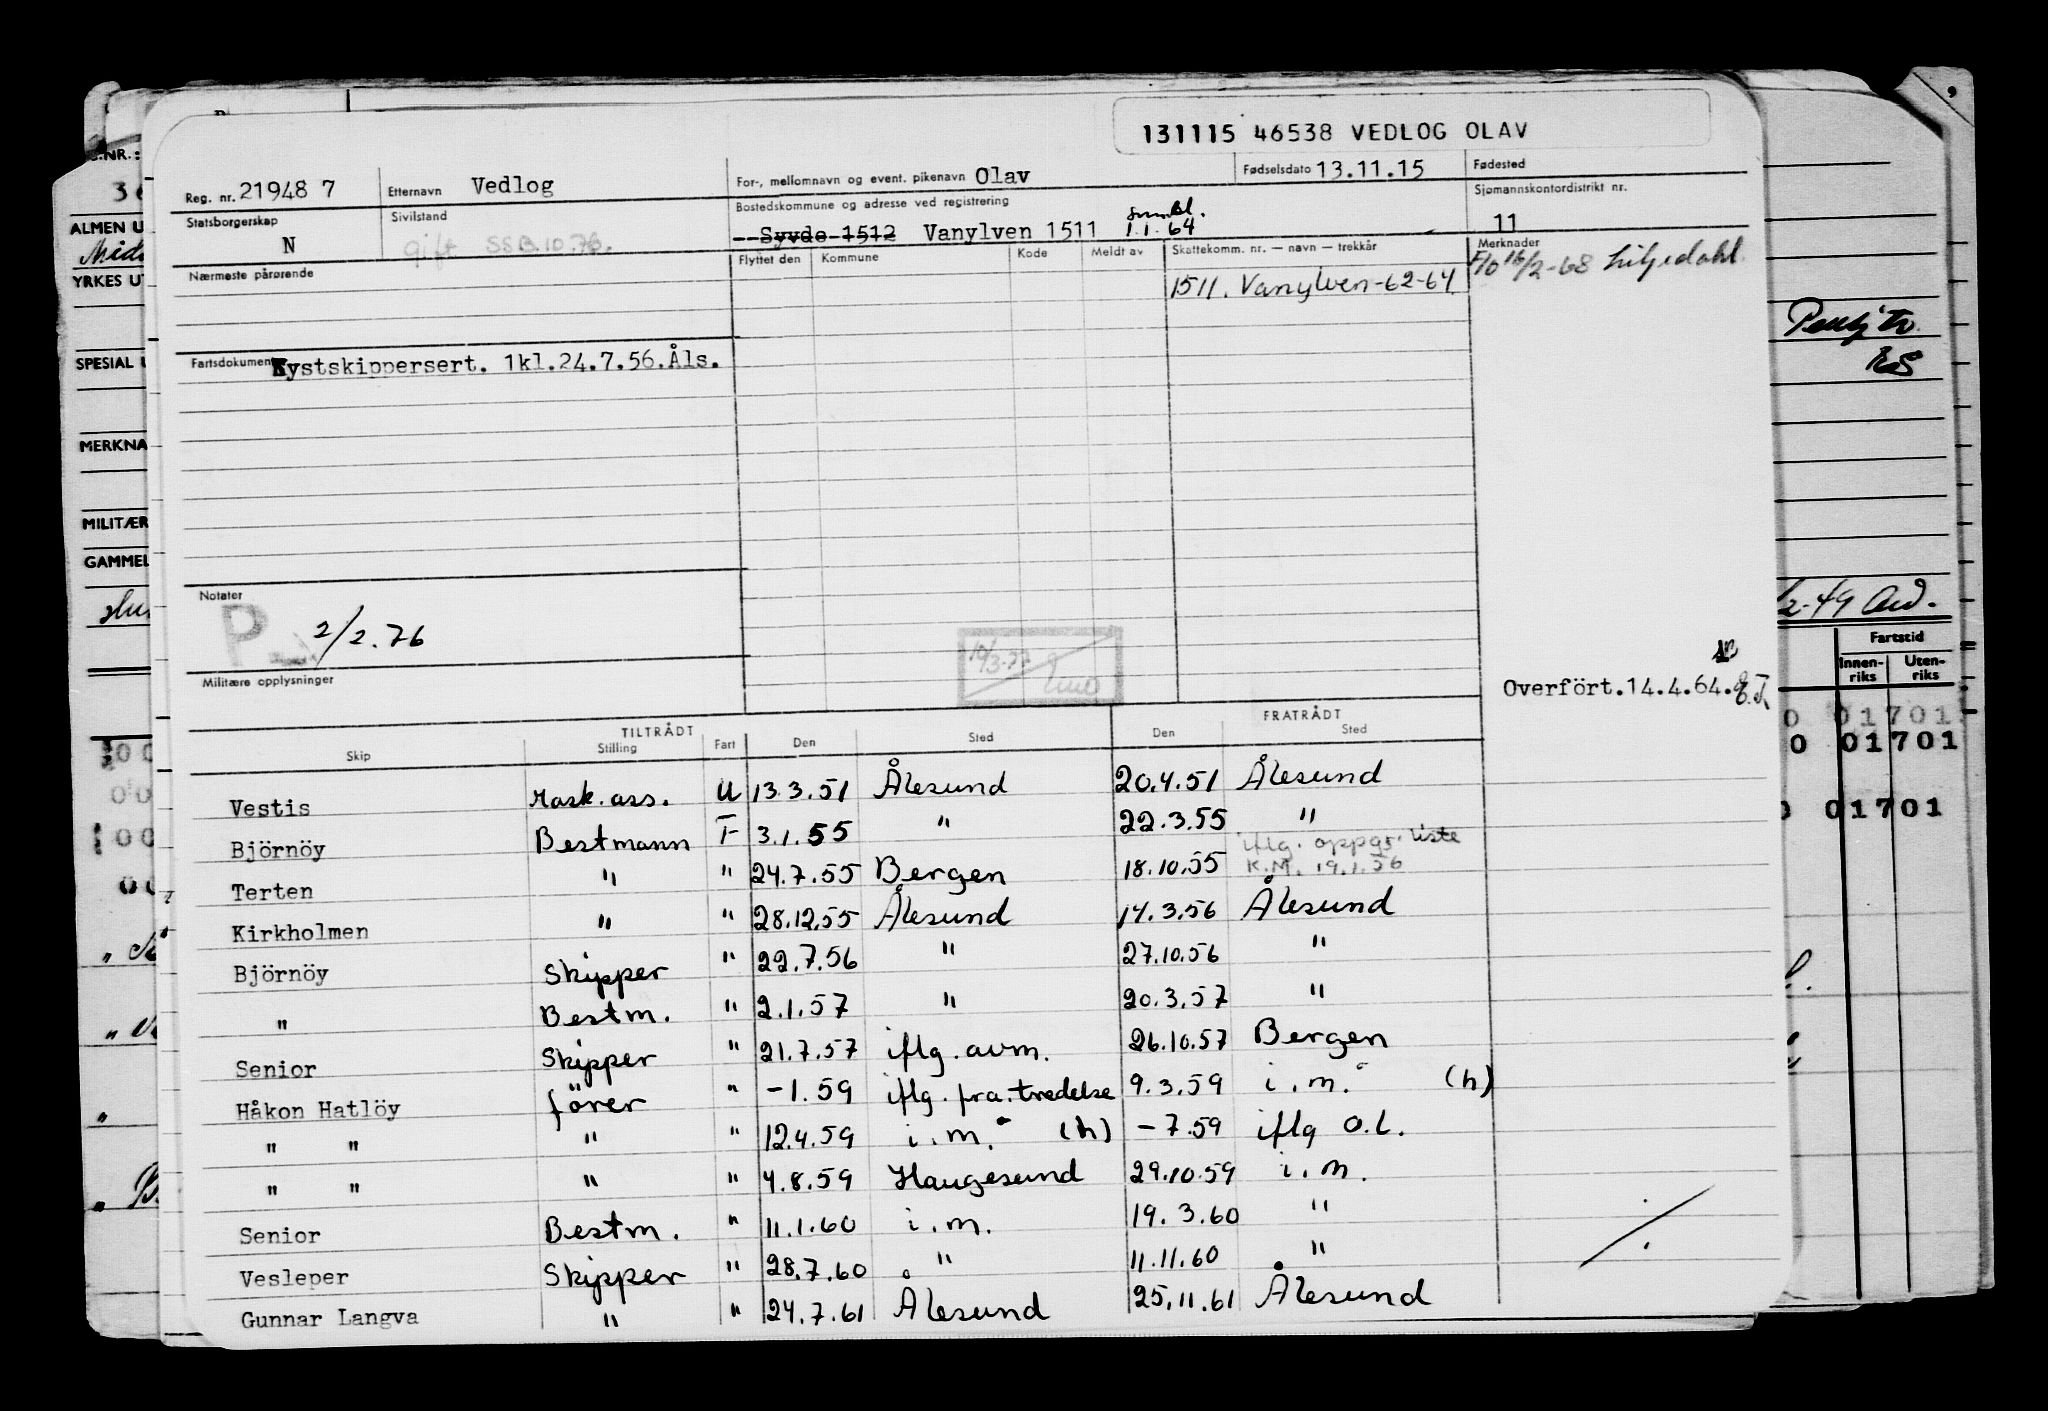 131115 46538 VEDLOG OLAV
Reg. nr. 21948 7 Etternavn Vedlog For-, mellomnavn og event. pikenavn Olav Fødselsdato 13.11.15 Fødested
Statsborgerskap N Sivilstand gift SSB.10.76. Bostedskommune og adresse ved registrering Syvde 1512 Vanylven 1511 1.1.64 Sjømannskontordistrikt nr. 11
Nærmeste pårørende Flyttet den Kommune Kode Meldt av Skattekomm. nr. — navn — trekkår Merknader
1511. Vanylven-62-64 F/O 16/2-68 Liljedahl.
Fartsdokument Kystskippersert. 1kl.24.7.56.Åls.
Notater
P 2/2.76
10/3-77
Militære opplysninger
Overfört.14.4.64.
TILTRÅDT FRATRÅDT
Skip Stilling Fart Den Sted Den Sted
Vestis Mask.ass. U 13.3.51 Ålesund 20.4.51 Ålesund
Björnöy Bestmann F 3.1.55 " 22.3.55 "
Terten " " 24.7.55 Bergen 18.10.55 iflg. oppgs. liste K.M. 19.1.56
Kirkholmen " " 28.12.55 Ålesund 14.3.56 Ålesund
Björnöy Skipper " 22.7.56 " 27.10.56 "
" Bestm. " 2.1.57 " 20.3.57 "
Senior Skipper " 21.7.57 iflg. avm. 26.10.57 Bergen
Håkon Hatlöy förer " -1.59 iflg. fra.tredelse 9.3.59 i.m. (h)
" " " " 12.4.59 i.m. (h) -7.59 iflg O.L.
" " " " 4.8.59 Haugesund 29.10.59 i.m.
Senior Bestm. " 11.1.60 i.m. 19.3.60 "
Vesleper Skipper " 28.7.60 " 11.11.60 "
Gunnar Langva " " 24.7.61 Ålesund 25.11.61 Ålesund
ALMEN U
YRKES UT
SPESIAL
MERKNA
MILITÆR
GAMMEL
Fartstid
Innen-riks Uten-riks
01701
0 01701
01701